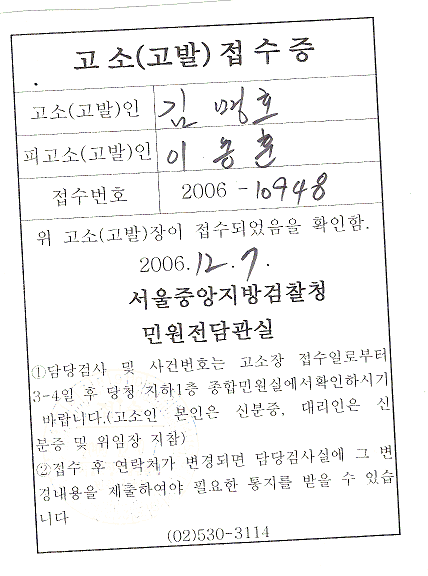 고 소(고발) 접 수 증
고소(고발)인 김 명호
피고소(고발)인 이 용 훈
접수번호 2006 - 10948
위 고소(고발)장이 접수되었음을 확인함.
2006. 12. 7.
서울중앙지방검찰청
민원전담관실
①담당검사 및 사건번호는 고소장 접수일로부터
3-4일 후 당청 지하1층 종합민원실에서확인하시기
바랍니다.(고소인 본인은 신분증, 대리인은 신
분증 및 위임장 지참)
②접수 후 연락처가 변경되면 담당검사실에 그 변
경내용을 제출하여야 필요한 통지를 받을 수 있습
니다
(02)530-3114